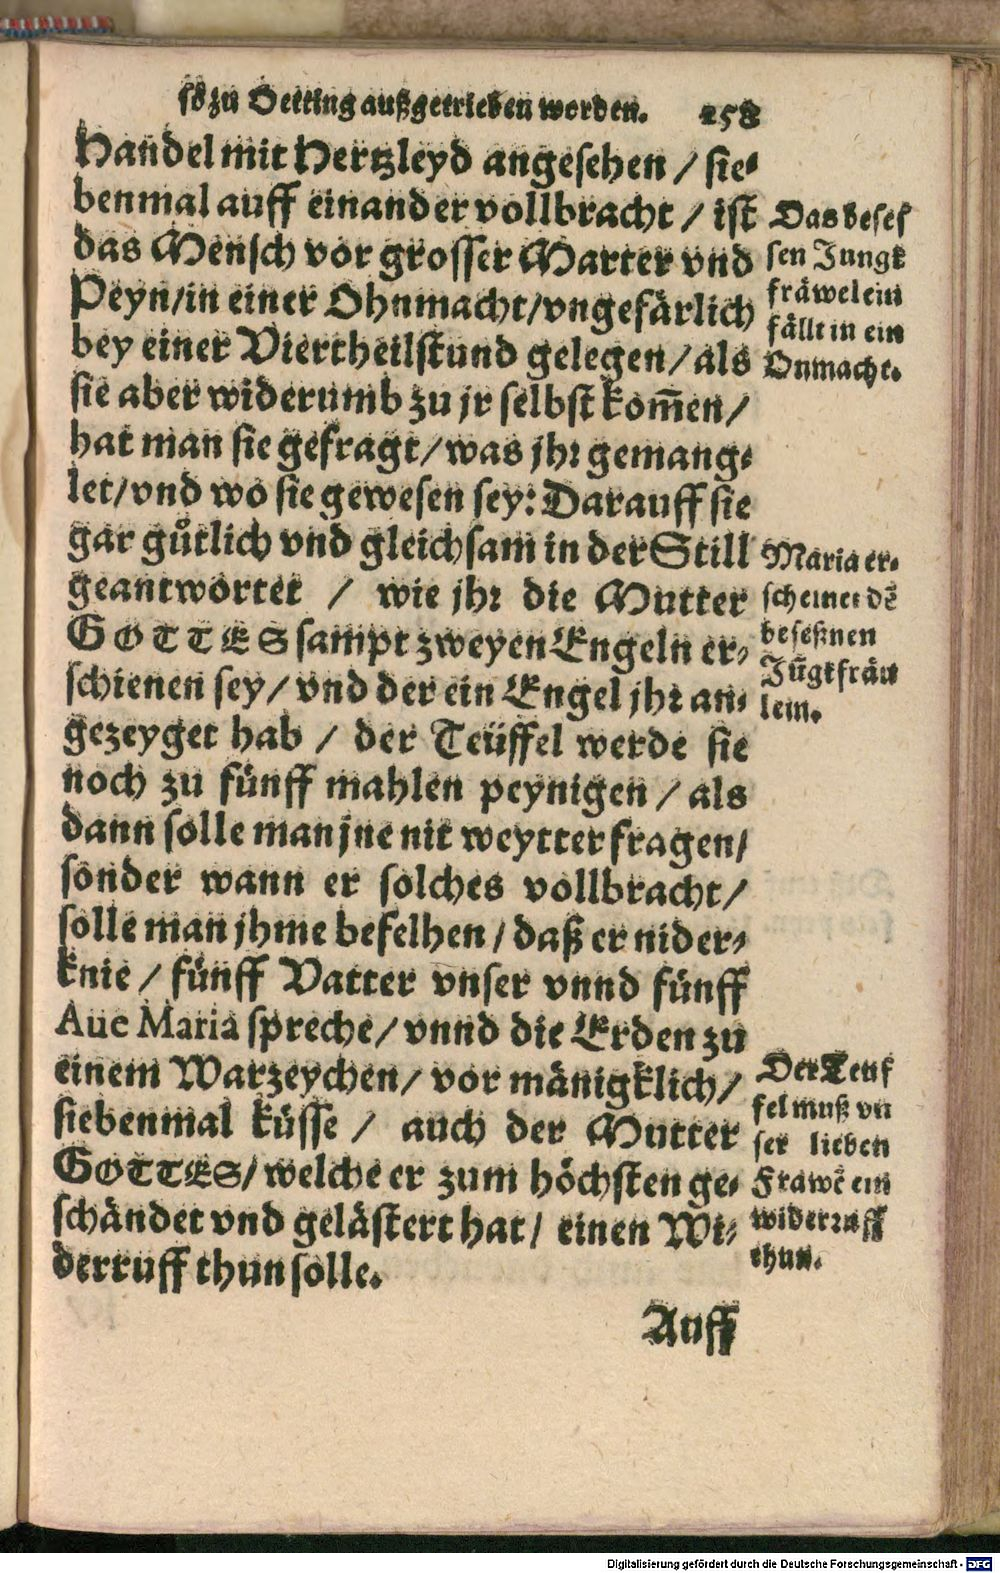 so zu Oetting außgetrieben worden. 258
Handel mit Hertzleyd angesehen / sie⸗
benmal auff einander vollbracht / ist
das Mensch vor grosser Marter vnd
Peyn/in einer Ohnmacht/vngefärlich
bey einer Viertheilstund gelegen/ als
sie aber widerumb zu jr selbst kom̄en/
hat man sie gefragt/was jhr gemang⸗
let/vnd wo sie gewesen sey: Darauff sie
gar guͤtlich vnd gleichsam in der Still
geantwortet / wie jhr die Mutter
GOTTES sampt zweyen Engeln er⸗
schienen sey/ vnd der ein Engel jhr an⸗
gezeyget hab / der Teüffel werde sie
noch zu fünff mahlen peynigen / als
dann solle man jne nit weytter fragen/
sonder wann er solches vollbracht/
solle man jhme befelhen / daß er nider⸗
knie / fünff Vatter vnser vnnd fünff
Aue Maria spreche/ vnnd die Erden zu
einem Warzeychen/ vor mänigklich/
siebenmal küsse / auch der Mutter
GOTTES/ welche er zum höchsten ge⸗
schändet vnd gelästert hat/ einen Wi⸗
derruff thun solle.
Auff
Das beses
sen Jungk
fräwelein
fällt in ein
Onmacht.
Maria er⸗
scheinet dē
beseßnen
Jūgkfräw
lein.
Der Teuf
fel muß vn
ser lieben
Frawē ein
widerruff
thun.
Digitalisierung gefördert durch die Deutsche Forschungsgemeinschaft - DFG